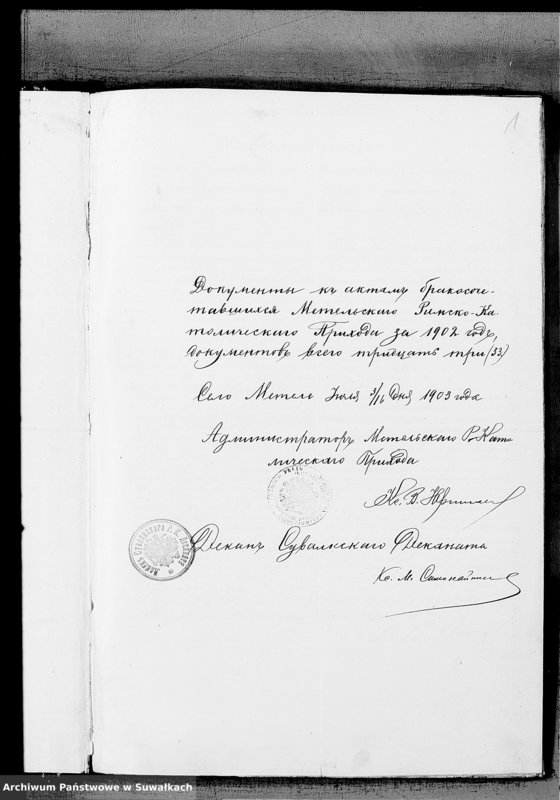 1
Документы къ актамъ бракосоче-
тавшихся Метельскаго Римско-Ка
толическаго Прихода за 1902 годъ,
документовъ всего тридцать три (33)
Село Метели Іюля 3/16 дня 1903 года
Администраторъ Метельскаго Р. Като
лическаго Прихода
Кс. В.
Деканъ Сувалкскаго Деканата
Кс. М.
Archiwum Państwowe w Suwałkach